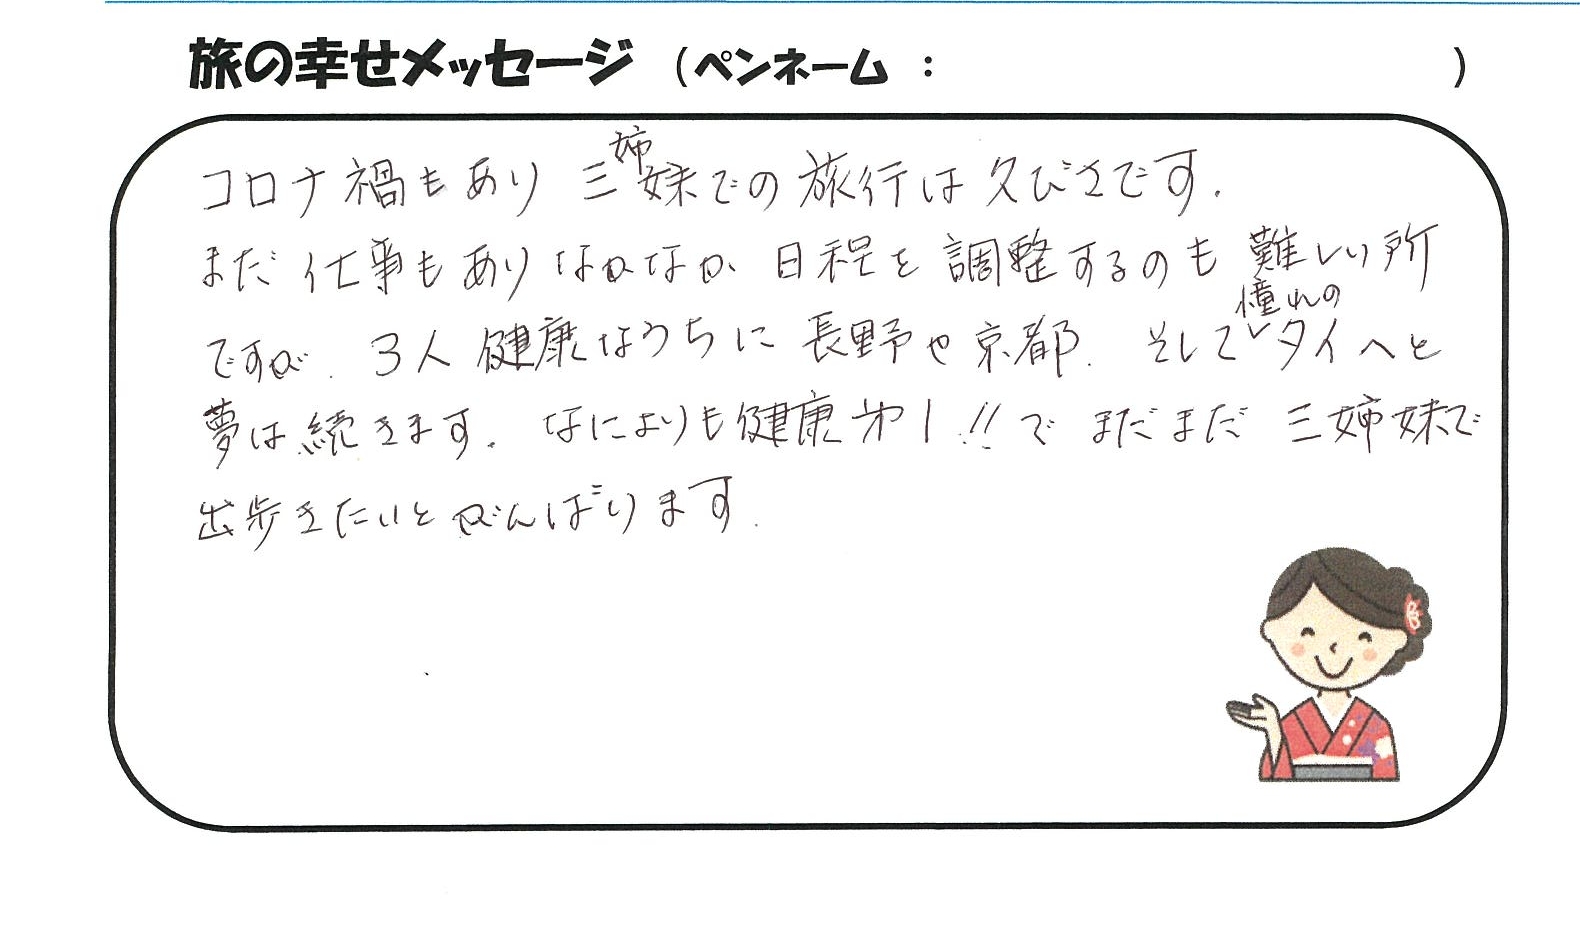 旅の幸せメッセージ (ペンネーム : )
コロナ禍もあり 三姉妹での旅行は久びさです.
まだ仕事もありなかなか 日程を調整するのも難しい所
ですが. 3人健康なうちに長野や京都. そして憧れのタイへと
夢は続きます. なによりも健康第1!!で まだまだ 三姉妹で
出歩きたいとがんばります.